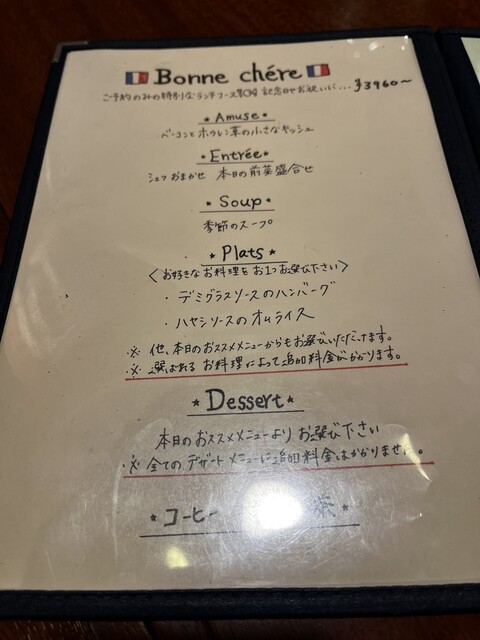 Bonne chére
ご予約のみの特別なランチコース 記念日やお祝いに... ¥3960〜
* Amuse *
ベーコンとホウレン草の小さなキッシュ
* Entrée *
シェフおまかせ 本日の前菜盛合せ
* Soup *
季節のスープ
* Plats *
〈お好きなお料理をお1つお選び下さい〉
・デミグラスソースのハンバーグ
・ハヤシソースのオムライス
※ 他、本日のおススメメニューからもお選びいただけます。
※ 選ばれるお料理によって追加料金がかかります。
* Dessert *
本日のおススメメニューよりお選び下さい
※ 全てのデザートメニューに追加料金はかかりません。
* コーヒー 茶 *